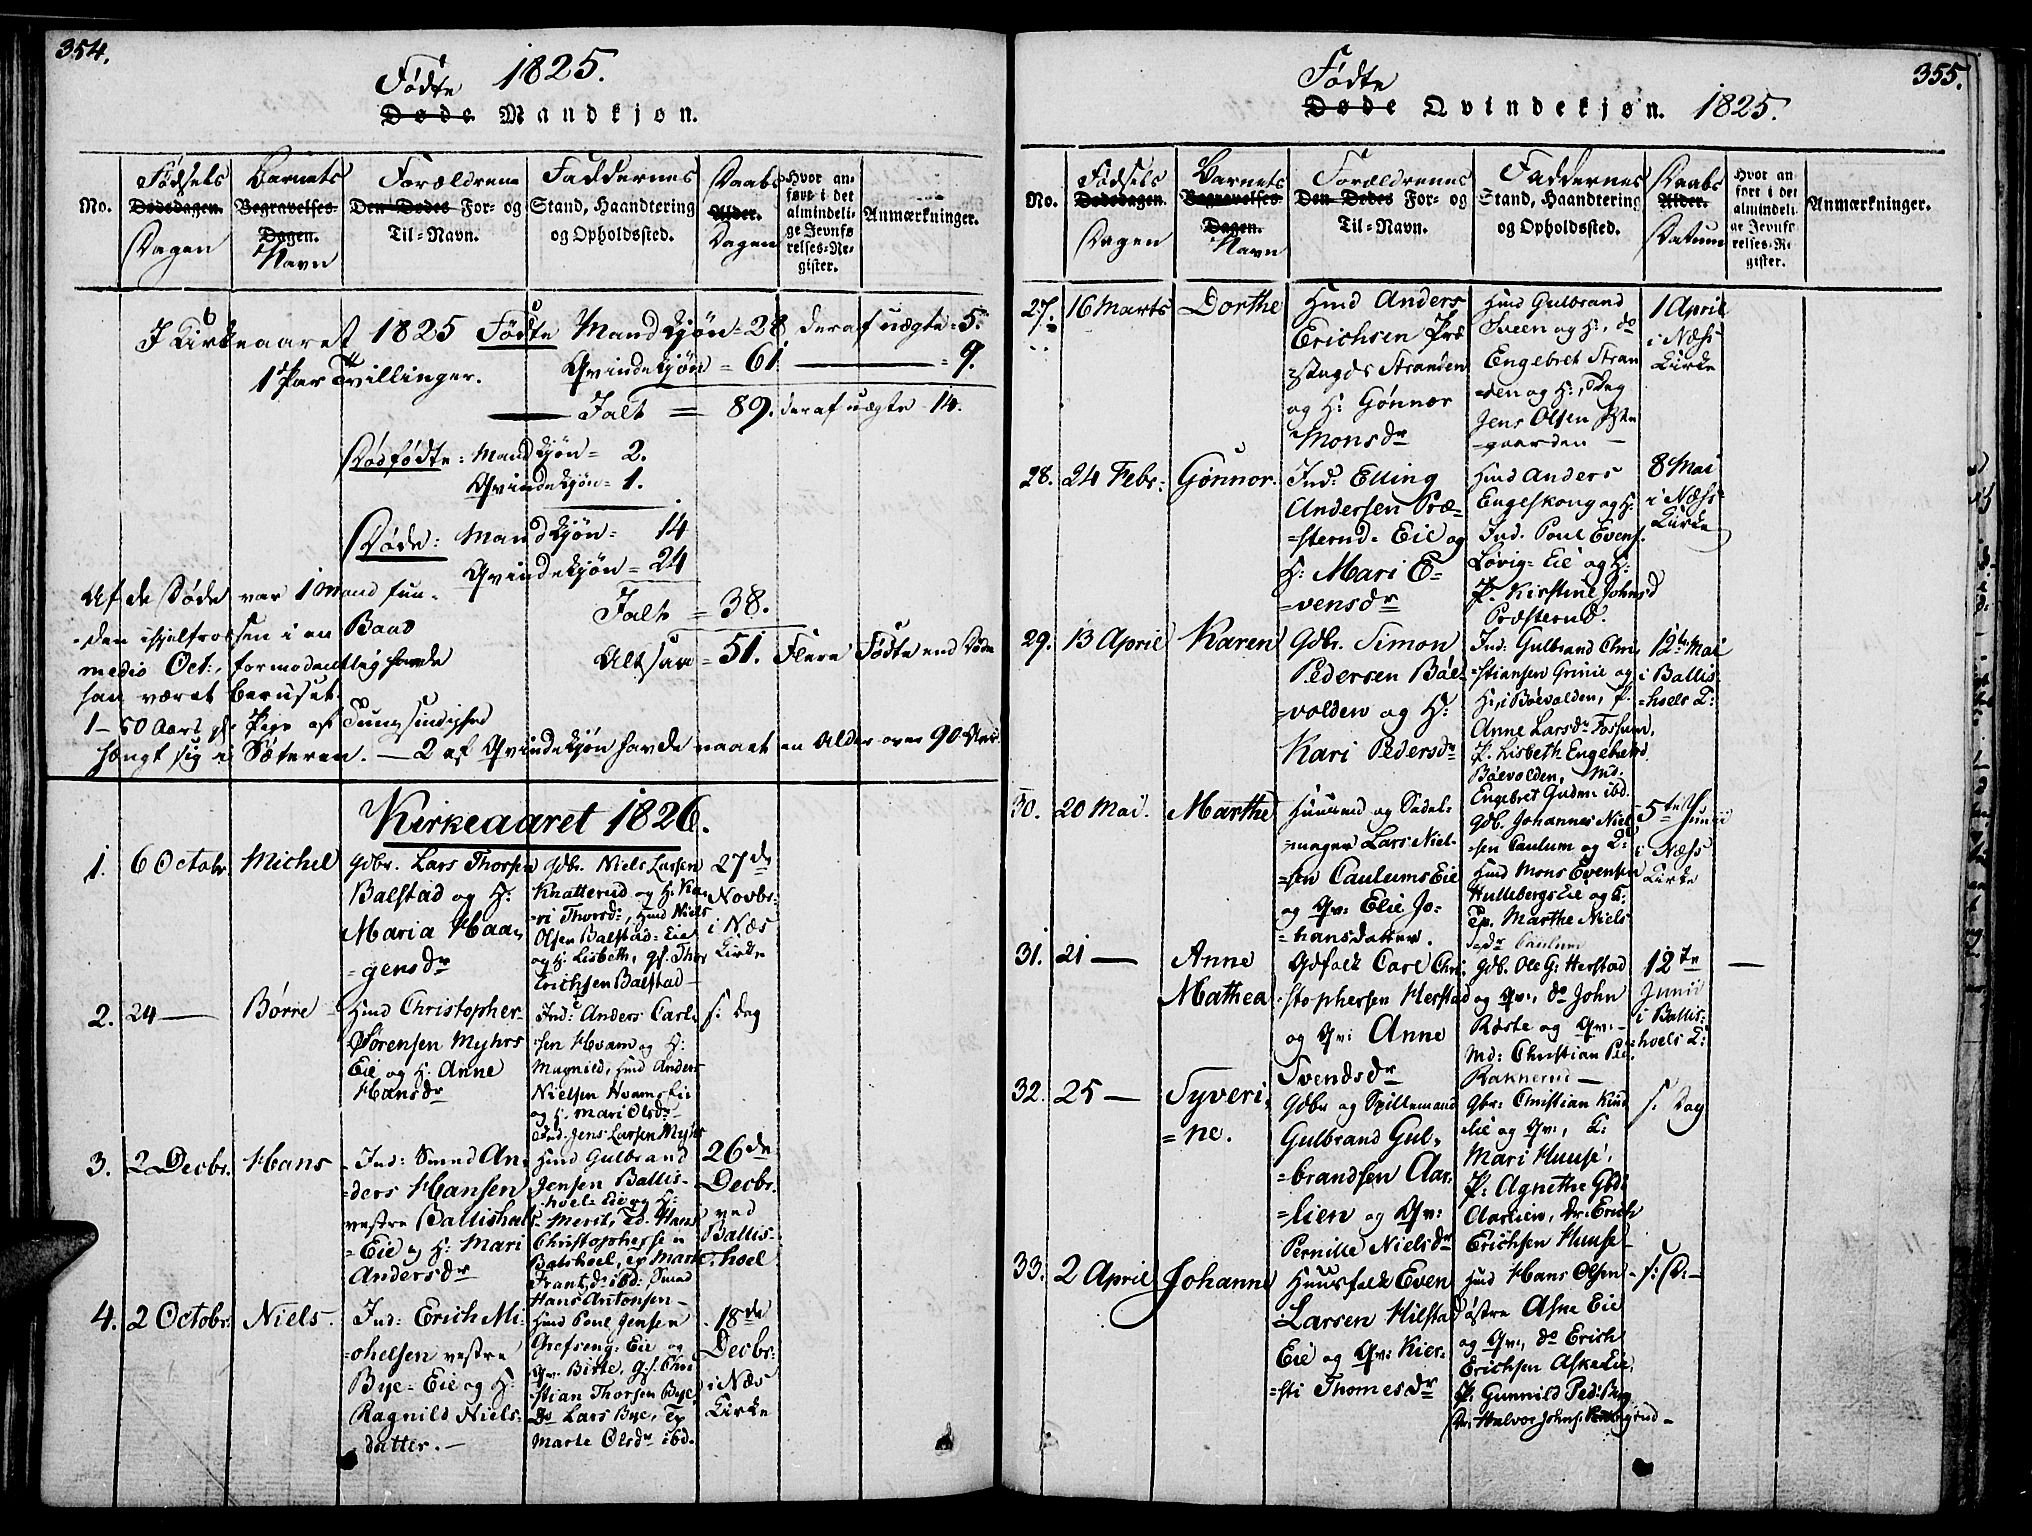 354.
Fødte 1825.
Døde Mandkjøn.
No.
Fødsels
Dødsdagen.
Dagen
Barnets
Begravelses-
Dagen.
Navn
Forældrene
Den Dødes For- og
Til-Navn.
Faddernes
Stand, Haandtering
og Opholdssted.
Daabs
Alder.
Dagen
Hvor an-
ført i det
almindeli-
ge Jevnfø
relses-Re-
gister.
Anmærkninger.
I Kirkeaaret 1825 Fødte Mandkjøn = 28 deraf uægte = 5.
Qvindekjøn = 61 — = 9.
1 Par Tvillinger.
Ialt = 89. deraf uægte 14.
Dødfødte: Mandkjøn = 2.
Qvindekjøn = 1.
Døde: Mandkjøn = 14
Qvindekjøn = 24
Ialt = 38.
Altsaa = 51. Flere Fødte end Døde
Af de Døde var 1 Mand fun-
den ihjelfrossen i en Baad
medio Oct., formodentlig havde
han været beruset.
1 - 50 Aars Pige af Tungsindighed
hængt sig i Sæteren. — 2 af Qvindekjøn havde naaet en Alder over 90 Aar.
Kirkeaaret 1826.
1. 6 Octobr. Michel
Gdbr. Lars Thorsen
Balstad og H:
Maria Haa-
=gensdr
Gdbr. Niels Larsen
Knatterud og H: Ka-
ri Thorsd:, Hmd Niels
Olsen Balstad= Eie
og H: Lisbeth, Gf. Thor
Erichsen Balstad
27de
Novbr.
i Næs
Kirke
2. 24 — Børre
Hmd Christopher
Sørensen Myhrs
Eie og H: Anne
Hansdr
Ind: Anders Carl-
sen Hvam og H:
Magnild, Hmd Anders
Nielsen Hvams Eie
og H. Mari Olsdr
Ind. Jens Larsen Myhrs
s: Dag
3. 2 Decbr. Hans
Ind: Smed An-
=ders Hansen
vestre Ballishoels
=Eie og H: Mari
Andersdr
Hmd Gulbrand
Jensen Ballis-
hoel= Eie og H:
Merit, Td. Hans
Christophersen
Balshoel, Ep Marte
Frantzd: ibd: Smed
Hans Antonsen
26de
Decbr.
ved
Ballis-
hoel
4. 2 Octobr. Niels.
Ind: Erich Mi-
=chelsen vestre
Bye= Eie og H:
Ragnild Niels-
datter.
Hmd Poul Jensen
Grefseng= Eie og
Qv: Bitte, Gf. Chri
stian Thorsen Bye
Do Lars Bye, Ep
Marte Olsdr ibd.
18de
Decbr:
i Næs
Kirke
355.
Fødte
Døde Qvindekjøn. 1825.
No.
Fødsels
Dødsdagen.
Dagen
Barnets
Begravelses-
Dagen.
Navn
Forældrenes
Den Dødes For- og
Til-Navn.
Faddernes
Stand, Haandtering
og Opholdssted.
Daabs
Alder.
Datum
Hvor an-
ført i det
almindeli-
ge Jevnfø
relses-Re-
gister.
Anmærkninger.
27. 16 Marts Dorthe
Hmd Anders
Erichsen Præ
=stegds Stranden
og H: Gønnor
Monsdr
Hmd Gulbrand
Sveen og H:, do
Engebret Stran
=den og H:,
Jens Olsen
gaarden —
1 April
i Næss
Kirke
28. 24 Febr: Gønnor.
Ind: Elling
Andersen Præ=
=sterud= Eie og
H: Mari E=
=vensdr
Hmd Anders
Engeskong og H:
Ind. Poul Evens.
Løvig= Eie og H:
P. Kirstine Johnsd
Præsterud.
8 Mai
i Næss
Kirke
29. 13 April Karen
Gdbr. Simon
Pedersen Bøe
=volden og H:
Kari Pedersdr
Ind: Gulbrand Chri
=stiansen Grinie og
H:, i Bøevolden, P.
Anne Larsdr Fossum,
P. Lisbeth Engebretsd
Bøevolden, Md:
Engebret Gudm: ibd.
12te Mai
i Ballis-
=hoels K:
30. 20 Mai. Marthe
Huusmd og Sadel-
=mager Lars Niel-
=sen Caulums Eie
og Qv: Elie Jo=
=hansdatter.
Gdb. Johannes Niel-
sen Caulum og K:
Hmd Mons Evensen
Hullebergs Eie og K:
Ep. Marthe Niels
dr Caulum
5te Junii
i Næss
Kirke
31. 21 — Anne
Mathea
Gdfolk Carl Chri-
stophersen Herstad
og Qv: Anne
Svendsdr
Gdb. Ole G: Herstad
og Qv:, do John
Røste og Qv:
Md: Christian Ped.
Raknerud —
12te
Junii
i Ballis-
hoels K:
—
32. 25 — Syveri-
=ne.
Gdbr og Spillemand
Gulbrand Gul-
=brandsen Aas-
=lien og Qv:
Pernille Nielsdr
Gbr: Christian
Eie og Qv:, K:
Mari Huuse,
P: Agnethe Gbd:
Aaslien, Dr: Erich
Erichsen Huuse
s: Dag
33. 2 April Johanne
Huusfolk Even
Larsen Hilstad
Eie og Qv: Kier-
=sti Thomesdr
Hmd Hans Olsen
østre Asne Eie
og Qv:, do Erich
Erichsen Aske Eie,
P: Gunnild Ped:
Dr: Halvor Johns:
s: D: —